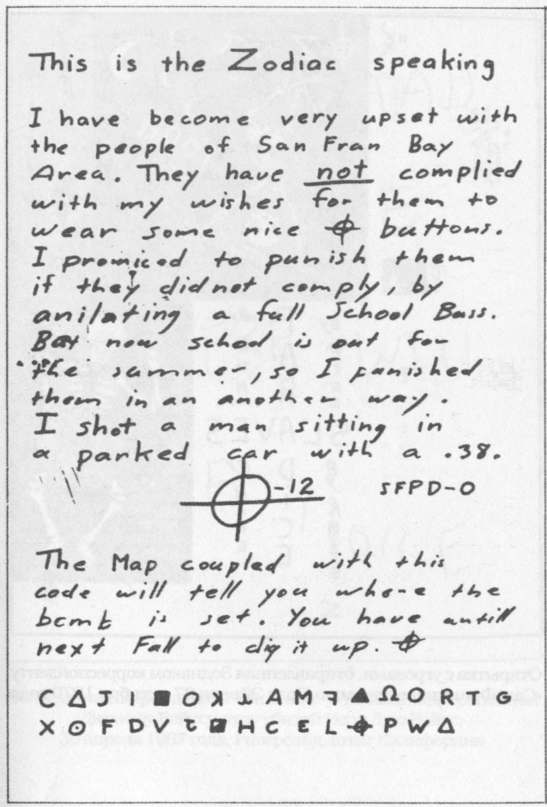 This is the Zodiac speaking
I have become very upset with
the people of San Fran Bay
Area. They have not complied
with my wishes for them to
wear some nice ⌖ buttons.
I promiced to punish them
if they did not comply, by
anilating a full School Buss.
But now school is out for
the summer, so I punished
them in an another way.
I shot a man sitting in
a parked car with a .38.
⌖-12 SFPD-0
The Map coupled with this
code will tell you where the
bomb is set. You have untill
next Fall to dig it up. ⌖
C Δ J I ■ O ʞ ⅄ A M ⅎ ▲ Ω O R T G
X ⊙ F D V ʇ ◪ H C E L ⌖ P W Δ